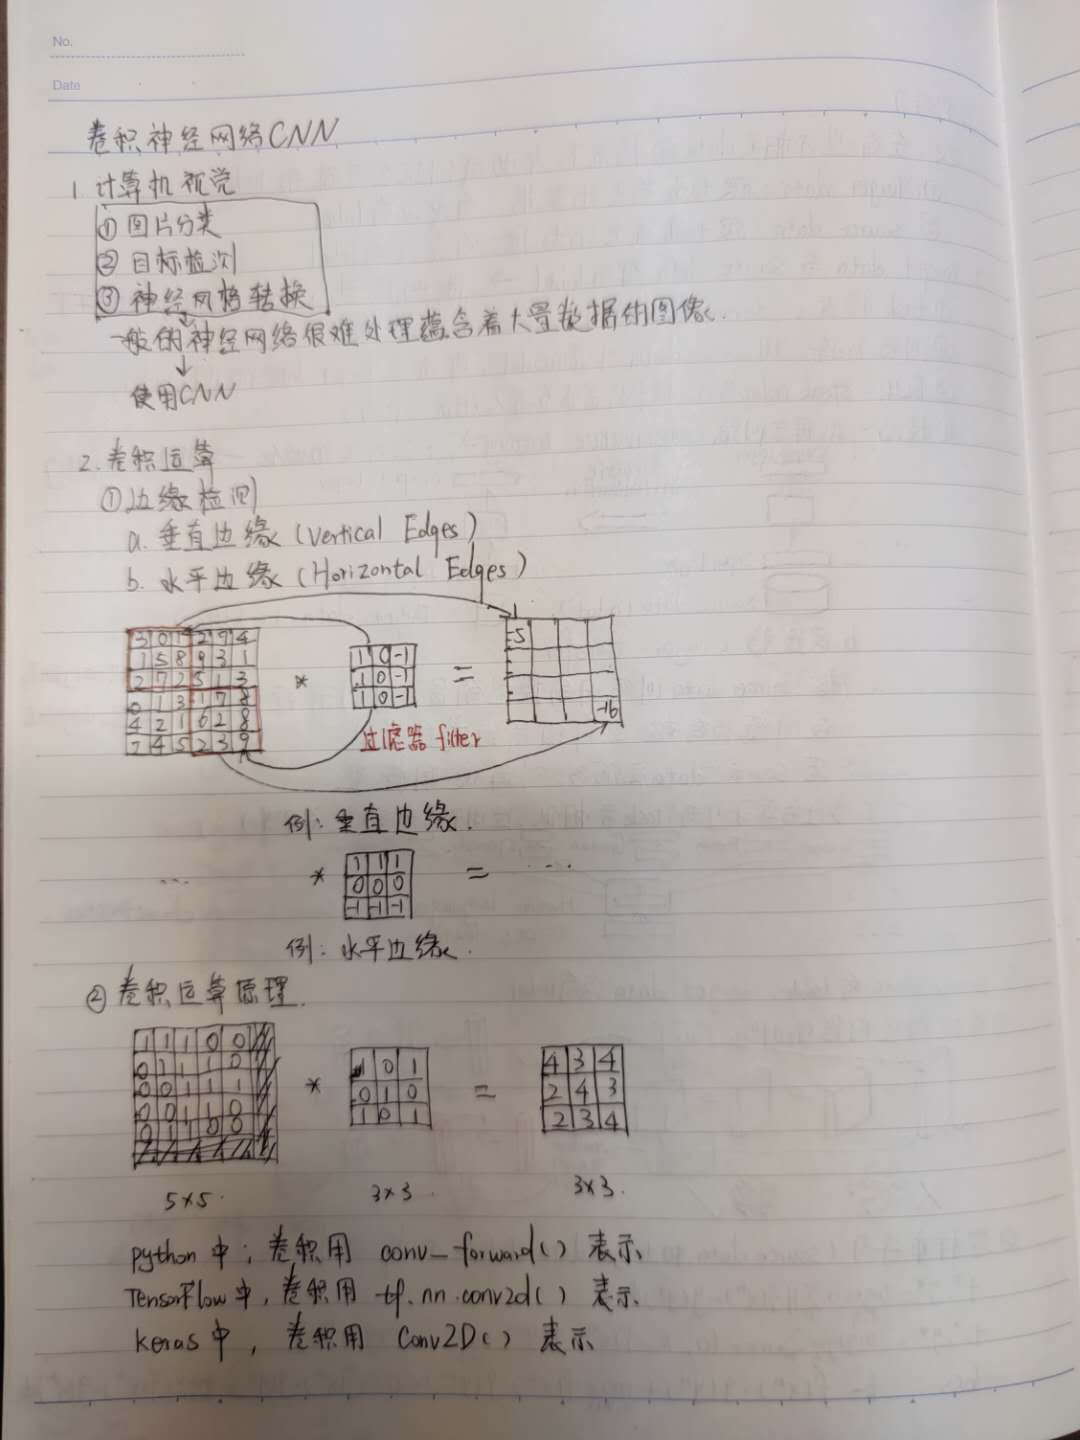 No.
Date
卷积神经网络CNN
1. 计算机视觉
① 图片分类
② 目标检测
③ 神经风格转换
一般的神经网络很难处理蕴含着大量数据的图像.
使用CNN
2. 卷积运算
①边缘检测
a. 垂直边缘 (Vertical Edges)
b. 水平边缘 (Horizontal Edges)
3 0 1 2 7 4
1 5 8 9 3 1
2 7 2 5 1 3
0 1 3 1 7 8
4 2 1 6 2 8
2 4 5 2 3 9
*
1 0 -1
1 0 -1
1 0 -1
=
-5
-16
过滤器 filter
例: 垂直边缘.
... * = ...
1 1 1
0 0 0
-1 -1 -1
例: 水平边缘.
② 卷积运算原理.
1 1 1 0 0
0 1 1 1 0
0 0 1 1 1
0 0 1 1 0
0 1 1 0 0
*
1 0 1
0 1 0
1 0 1
=
4 3 4
2 4 3
2 3 4
5×5. 3×3 3×3.
python 中; 卷积用 conv_forward() 表示
TensorFlow 中, 卷积用 tf.nn.conv2d() 表示
keras 中, 卷积用 Conv2D() 表示